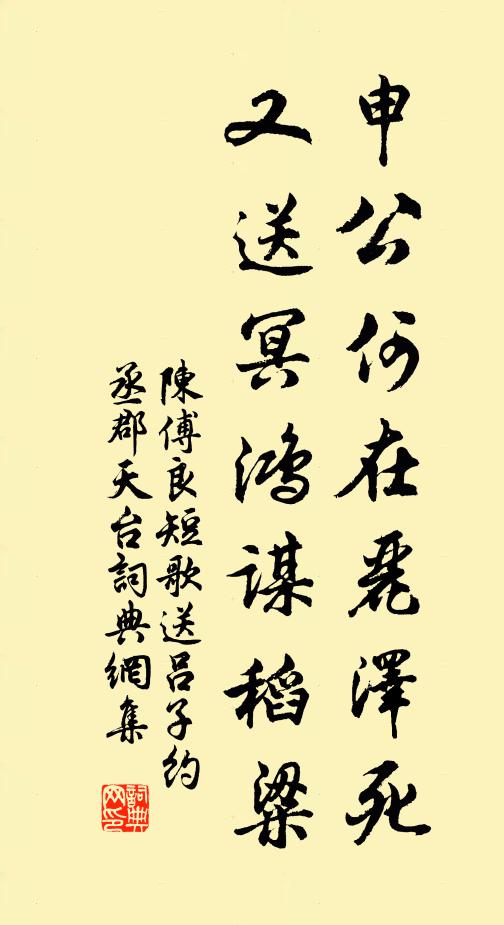 申公何在麗澤死
又送冥鴻謀稻粱
陳傅良短歌送呂子約
丞郡天台詞典網集
詞典
网印